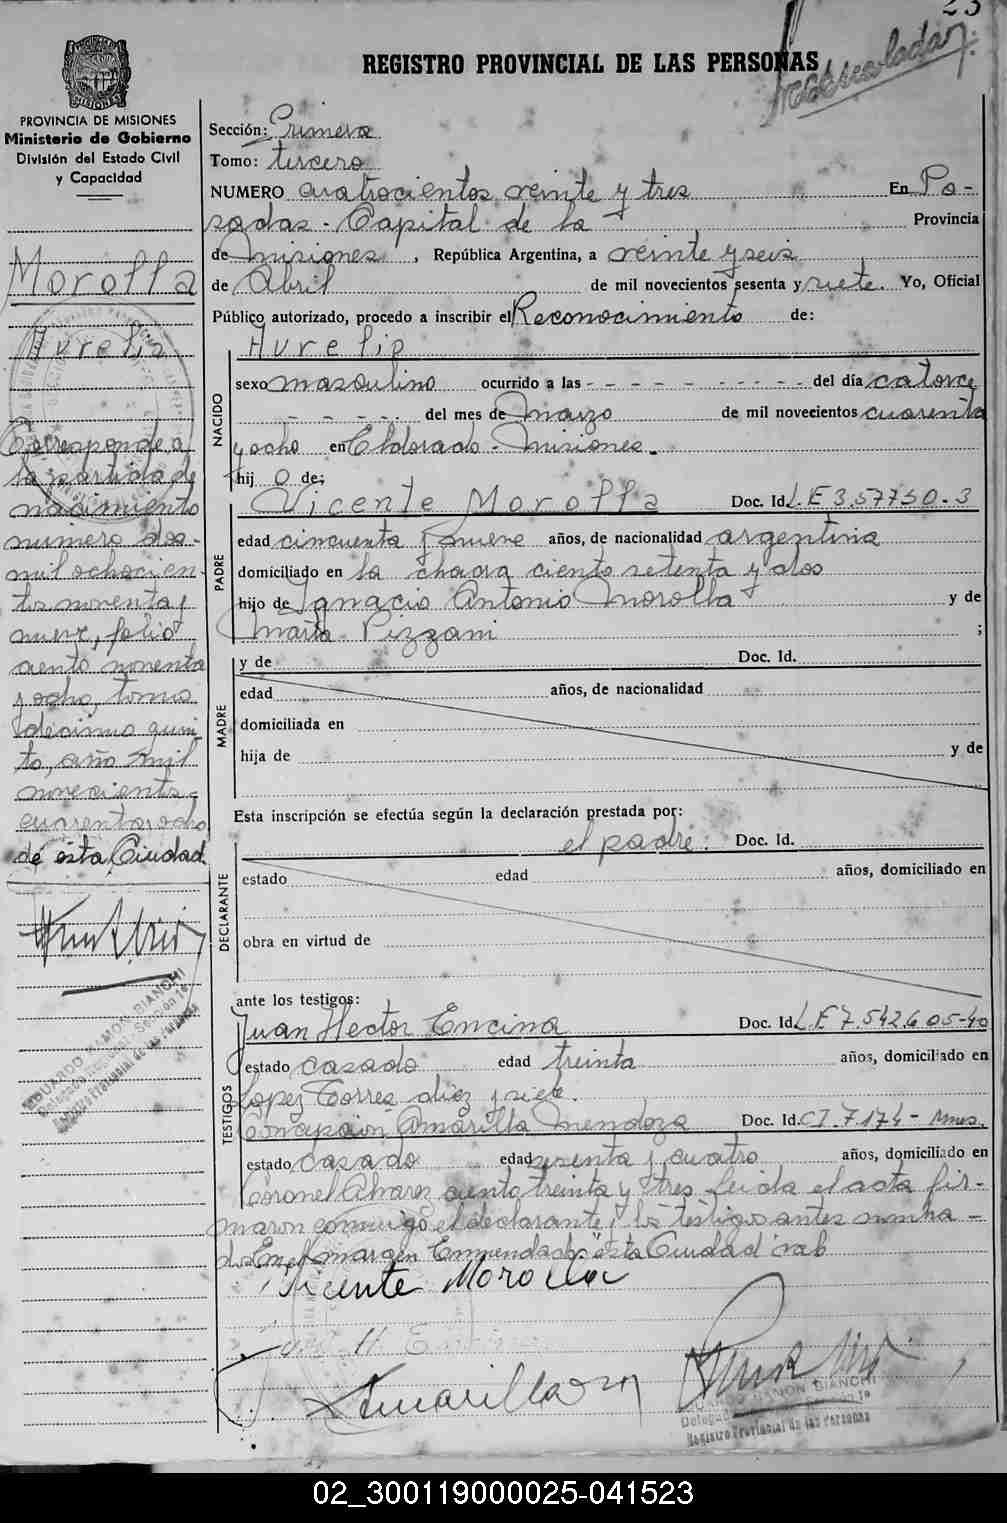 23
REGISTRO PROVINCIAL DE LAS PERSONAS
PROVINCIA DE MISIONES
Ministerio de Gobierno
División del Estado Civil
y Capacidad
Sección: Primera
Tomo: tercero
NUMERO cuatrocientos veinte y tres En Po-
sadas - Capital de la Provincia
de Misiones, República Argentina, a veinte y seis
de Abril de mil novecientos sesenta y siete. Yo, Oficial
Público autorizado, procedo a inscribir el Reconocimiento de:
Aurelio
NACIDO
sexo masculino ocurrido a las - - - - - - - - - - del día catorce
- - - - - - del mes de Marzo de mil novecientos cuarenta
y ocho en Eldorado - Misiones.
hij o de:
PADRE
Vicente Morolla Doc. Id. L E 3.57750.3
edad cincuenta y nueve años, de nacionalidad argentina
domiciliado en la chacra ciento setenta y dos
hijo de Ignacio Antonio Morolla y de
María Pizzani ;
MADRE
y de Doc. Id.
edad años, de nacionalidad
domiciliada en
hija de y de
Esta inscripción se efectúa según la declaración prestada por:
el padre: Doc. Id.
DECLARANTE
estado edad años, domiciliado en
obra en virtud de
ante los testigos:
TESTIGOS
Juan Hector Encina Doc. Id. L.E 7.542.605-40
estado casado edad treinta años, domiciliado en
Lopez Torres diez y siete.
Concepción Amarilla Mendoza Doc. Id. C I. 7.174- Mnes.
estado casado edad sesenta y cuatro años, domiciliado en
Coronel Alvarez ciento treinta y tres Leida el acta fir-
maron conmigo el declarante y los testigos antes nombra-
dos En el margen Enmendado "esta Ciudad" vale
Vicente Morolla
Amarilla m
EDUARDO RAMON BIANCHI
Registro Provincial de las Personas
Morolla
Aurelio
Corresponde a
la partida de
nacimiento
número dos-
mil ochocien-
tos noventa y
nueve, folio
ciento noventa
y ocho, tomo
décimo quin-
to, año mil
novecientos
cuarenta y ocho
de esta Ciudad
EDUARDO RAMON BIANCHI
Registro Provincial de las Personas
02_300119000025-041523